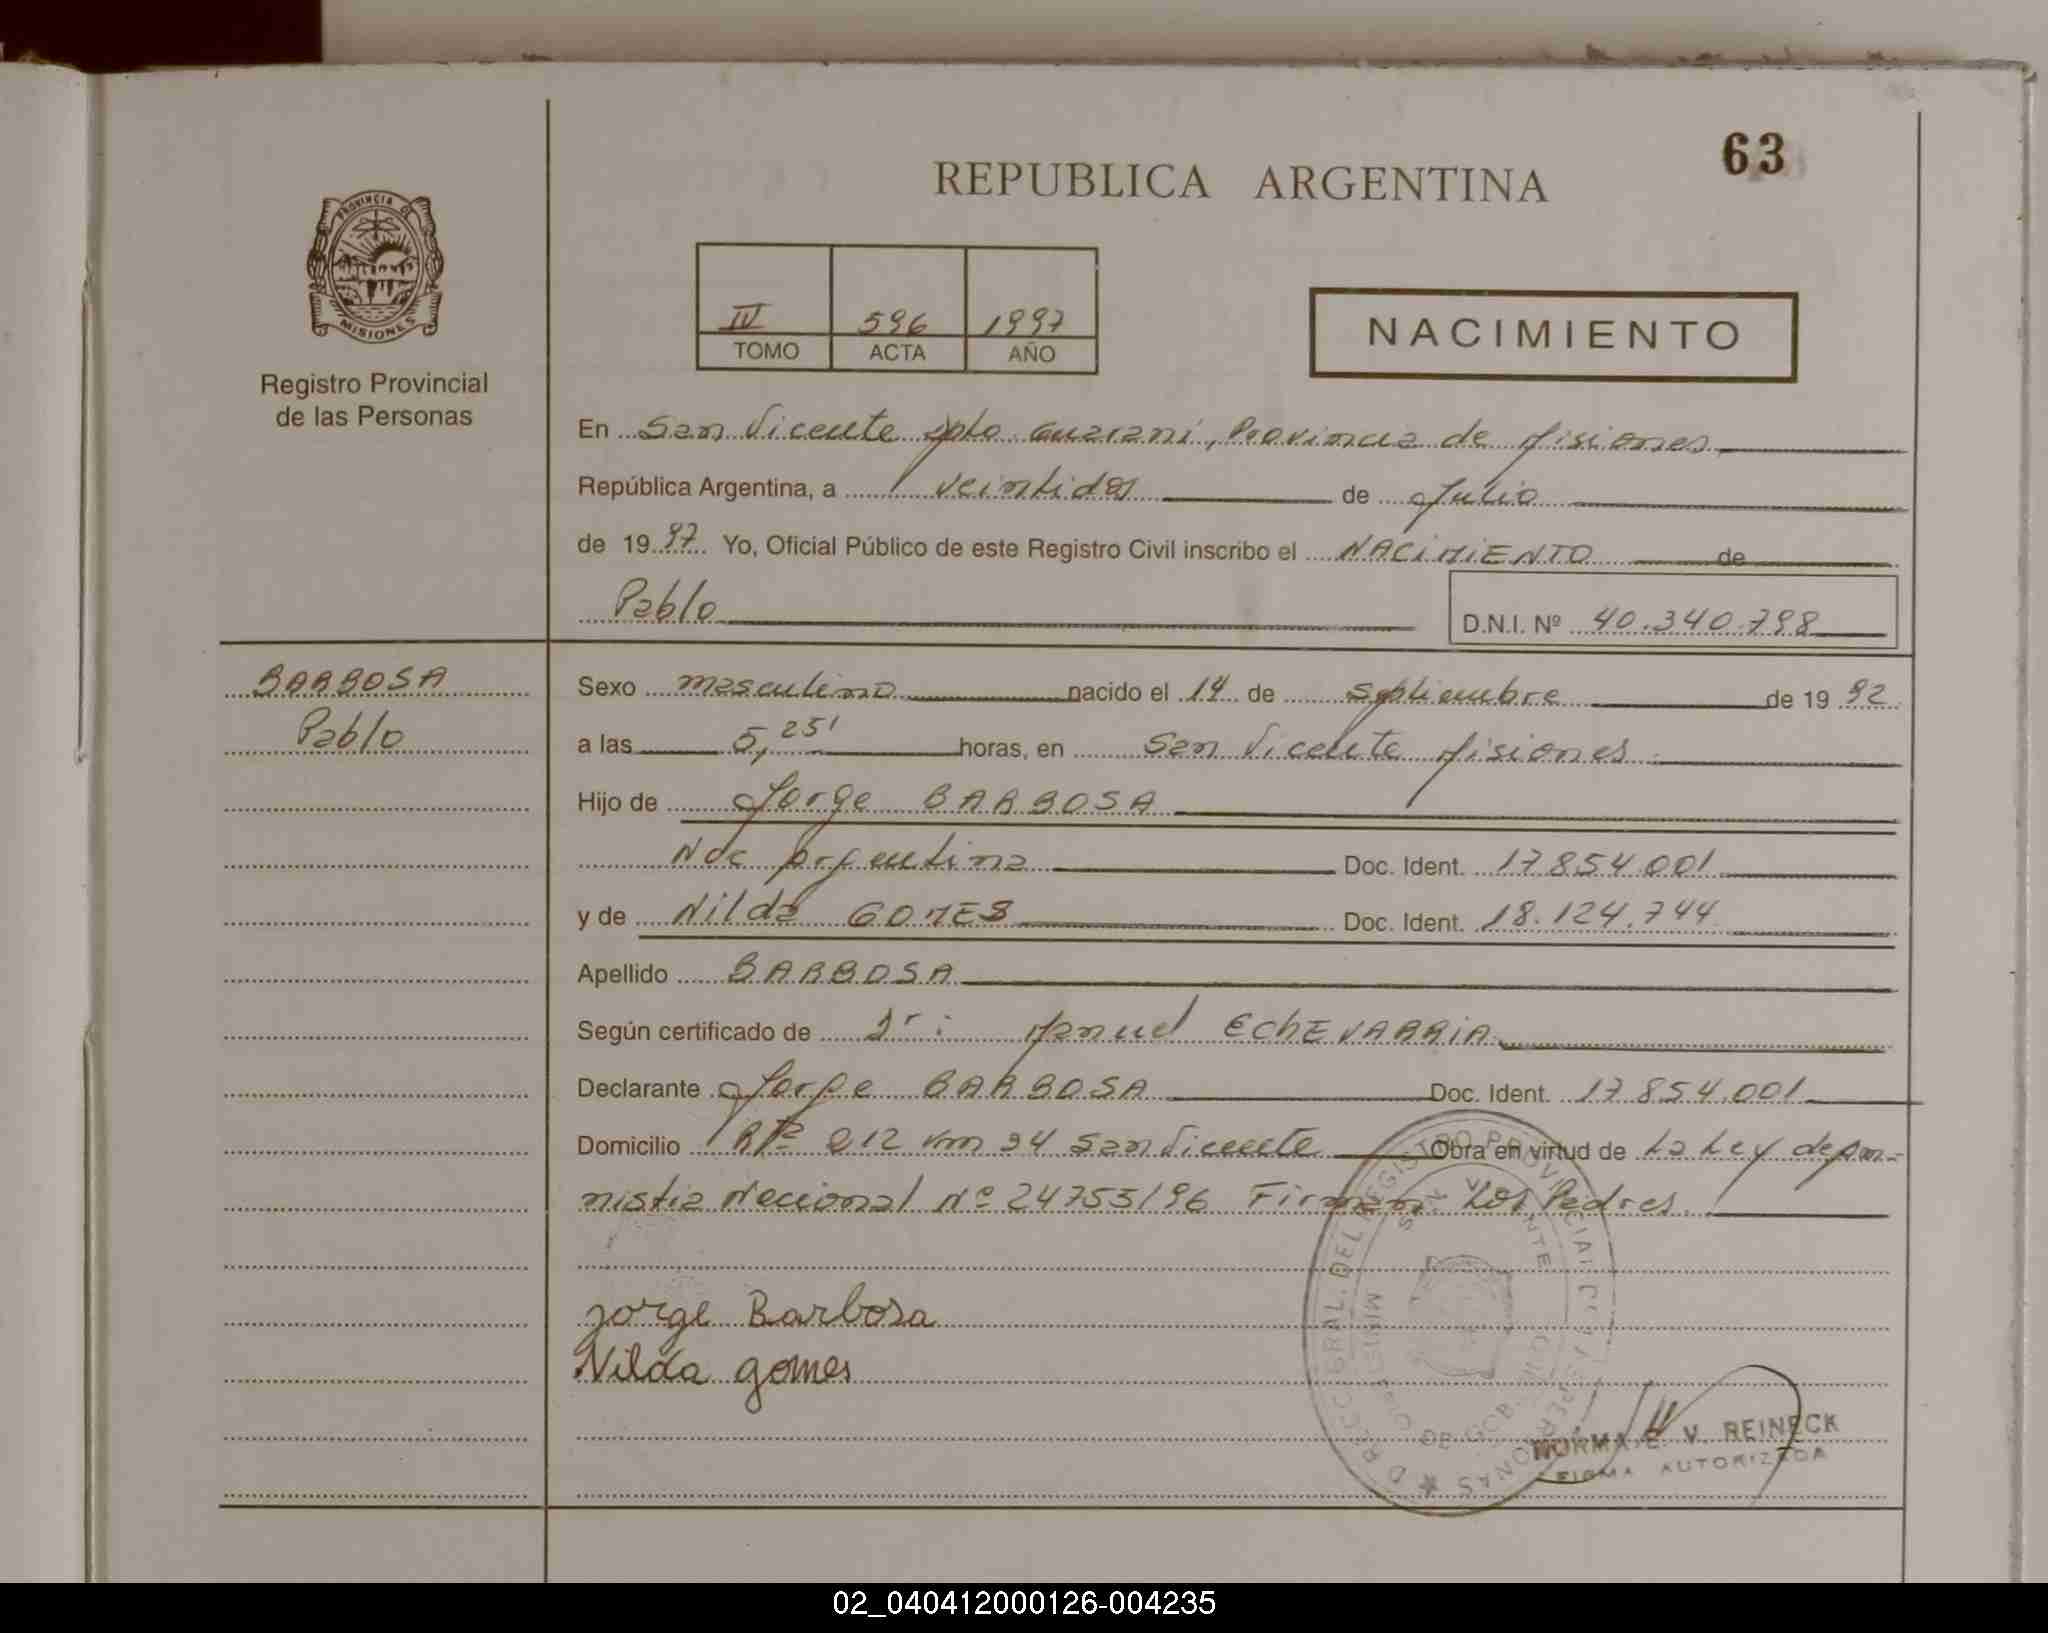 63
REPUBLICA ARGENTINA
PROVINCIA DE
MISIONES
Registro Provincial
de las Personas
IV 596 1997
TOMO ACTA AÑO
NACIMIENTO
En San Vicente Dpto Guaraní, Provincia de Misiones
República Argentina, a veintidos de Julio
de 1997 Yo, Oficial Público de este Registro Civil inscribo el NACIMIENTO de
Pablo D.N.I. Nº 40.340.798
BARBOSA
Pablo
Sexo masculino nacido el 14 de Septiembre de 1992
a las 5,25' horas, en San Vicente Misiones
Hijo de Jorge BARBOSA
Nac Argentina Doc. Ident. 17854.001
y de Nilda GOMES Doc. Ident. 18.124.744
Apellido BARBOSA
Según certificado de Dr: Manuel EChEVARRIA
Declarante Jorge BARBOSA Doc. Ident. 17854.001
Domicilio Rta 212 Km 34 San Vicente Obra en virtud de La Ley de Am-
nistia Nacional Nº 24755/96 Firman Los Padres
Jorge Barbosa
Nilda gomes
DIRECC. GRAL. DEL REGISTRO PROVINCIAL DE LAS PERSONAS
NORMA E. V. REINECK
FIRMA AUTORIZADA
02_040412000126-004235